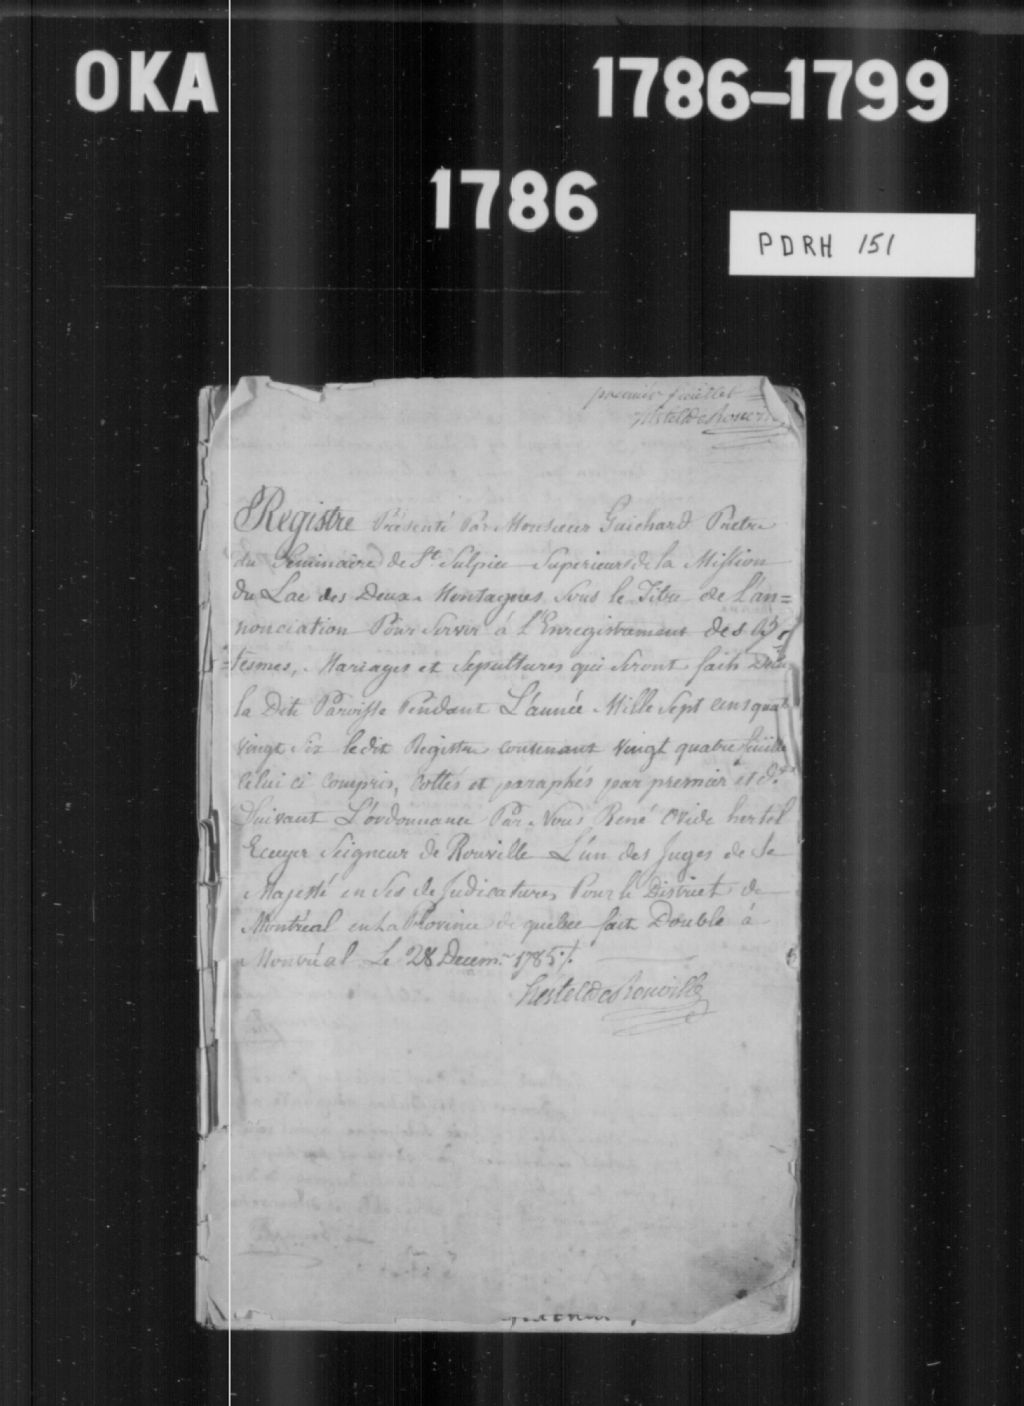 OKA 1786-1799
1786
PDRH 151
premier feuillet
HerteldeRouville
Registre Présenté Par Monsieur Guichard Prêtre
du Seminaire de St. Sulpice Superieur de la Mission
du Lac des Deux Montagnes sous le Titre de L'an=
nonciation Pour servir à l'Enregistrament des Bap
=têsmes, Mariages et Sepultures qui Seront faits Dans
la Dite Paroisse Pendant L'année Mille Sept cens quat
vingt Six ledit Registre contenant vingt quatre feüille
Celui ci compris, Cottés et paraphés par premier et dr.
Suivant L'ordonnance Par Nous René Ovide hertel
Ecuyer Seigneur de Rouville L'un des Juges de Sa
Majesté en Ses de Judicatures Pour le District de
Montréal en La Province de quebec fait Double à
Montréal Le 28 Decemr. 1785 ./.
HerteldeRouville